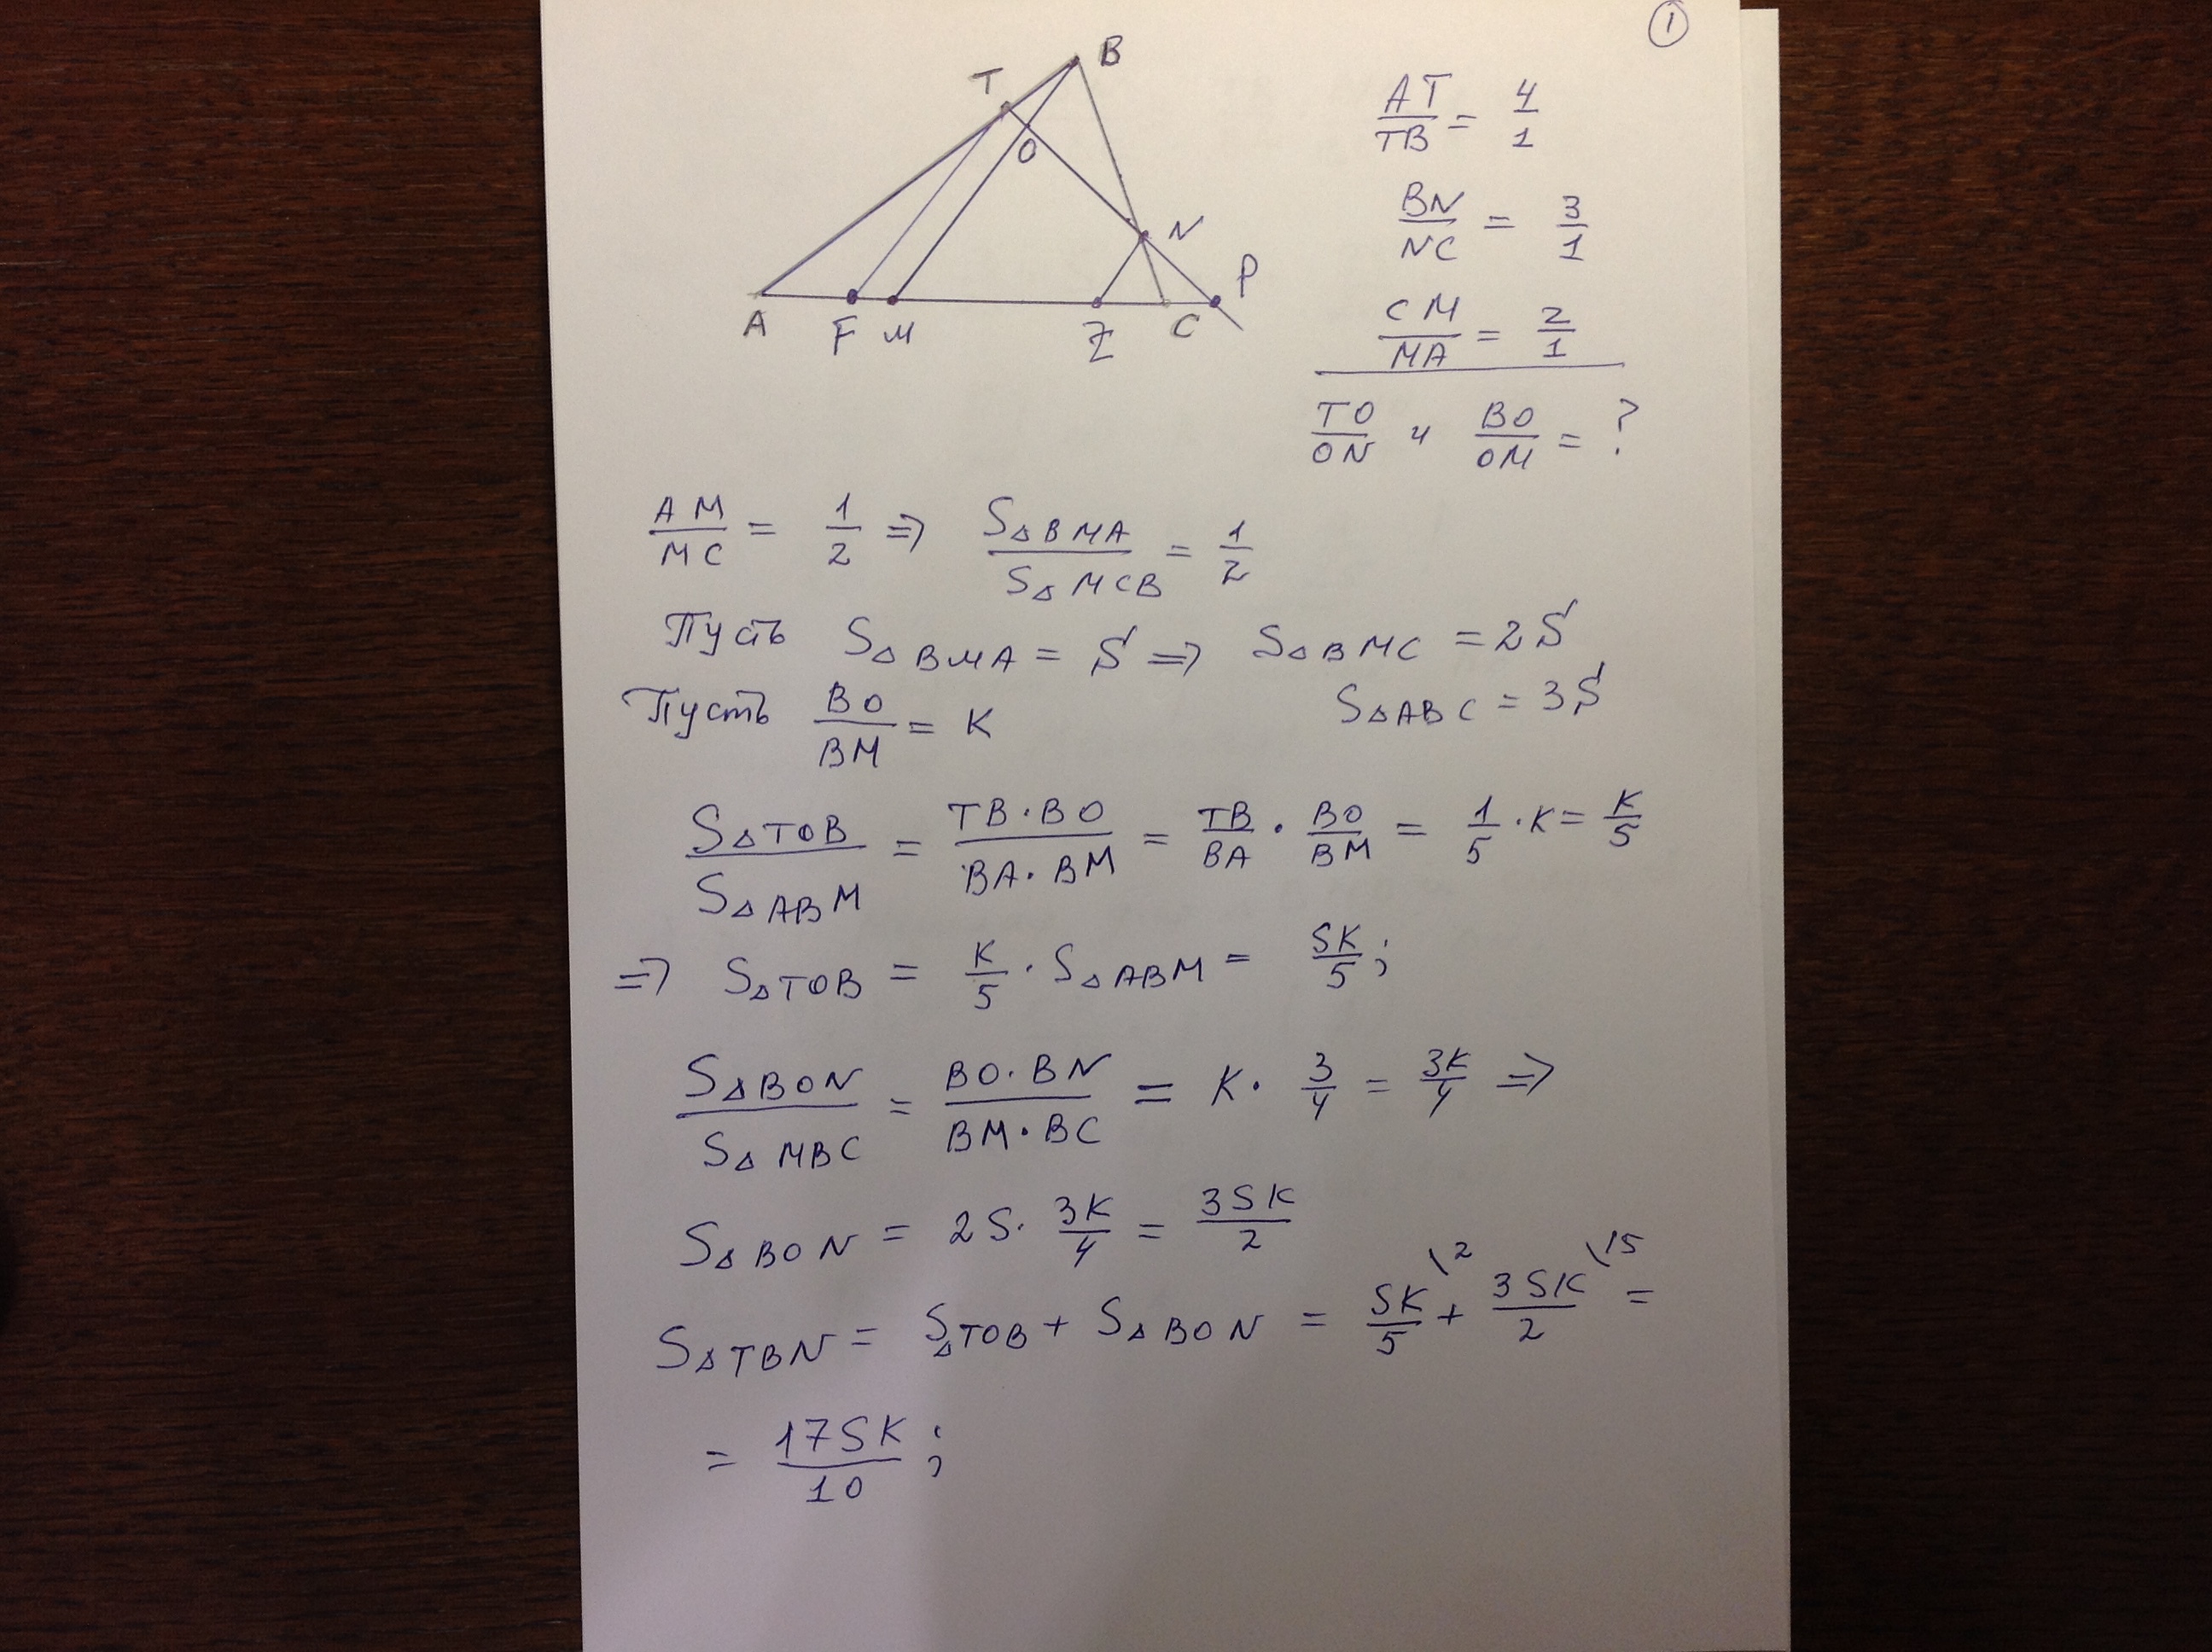 1
B
T
O
N
P
A F M Z C
AT/TB = 4/1
BN/NC = 3/1
CM/MA = 2/1
TO/ON и BO/OM = ?
AM/MC = 1/2 => S△BMA/S△MCB = 1/2
Пусть S△BMA = S => S△BMC = 2S
Пусть BO/BM = K S△ABC = 3S
S△TOB/S△ABM = TB·BO/BA·BM = TB/BA · BO/BM = 1/5 · K = K/5
=> S△TOB = K/5 · S△ABM = SK/5;
S△BON/S△MBC = BO·BN/BM·BC = K · 3/4 = 3K/4 =>
S△BON = 2S· 3K/4 = 3SK/2
S△TBN = S△TOB + S△BON = SK/5 \2 + 3SK/2 \15 =
= 17SK/10 ;